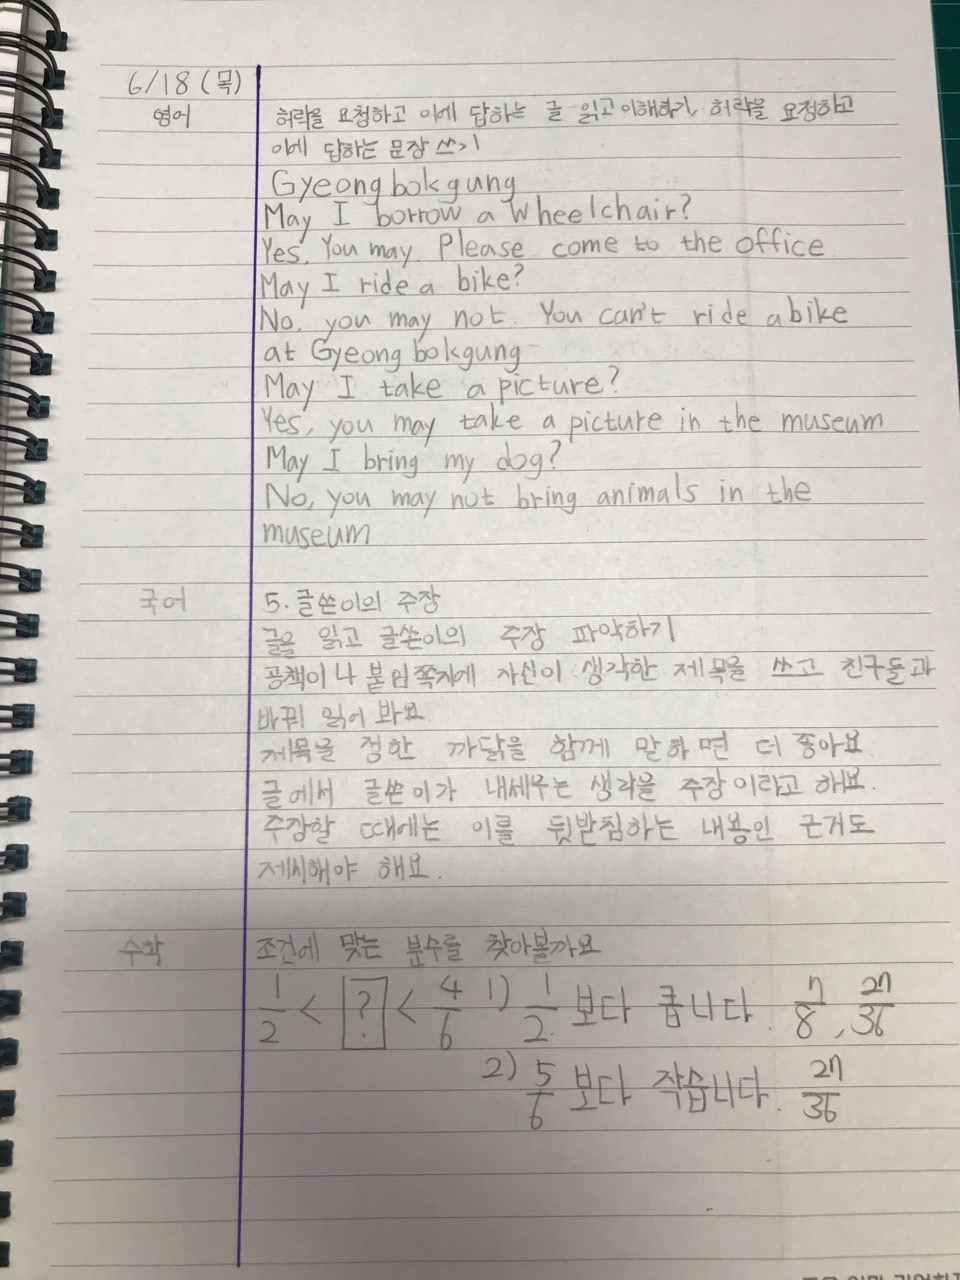 6/18 (목)
영어 허락을 요청하고 이에 답하는 글 읽고 이해하기, 허락을 요청하고
이에 답하는 문장 쓰기
Gyeongbokgung
May I borrow a wheelchair?
Yes, You may. Please come to the office
May I ride a bike?
No, you may not. You can't ride a bike
at Gyeongbokgung
May I take a picture?
Yes, you may take a picture in the museum
May I bring my dog?
No, you may not bring animals in the
museum
국어 5. 글쓴이의 주장
글을 읽고 글쓴이의 주장 파악하기
공책이나 붙임쪽지에 자신이 생각한 제목을 쓰고 친구들과
바꿔 읽어 봐요
제목을 정한 까닭을 함께 말하면 더 좋아요
글에서 글쓴이가 내세우는 생각을 주장이라고 해요.
주장할 때에는 이를 뒷받침하는 내용인 근거도
제시해야 해요.
수학 조건에 맞는 분수를 찾아볼까요
1/2 < ? < 4/6 1) 1/2 보다 큽니다. 7/8, 27/36
2) 5/6 보다 작습니다. 27/36